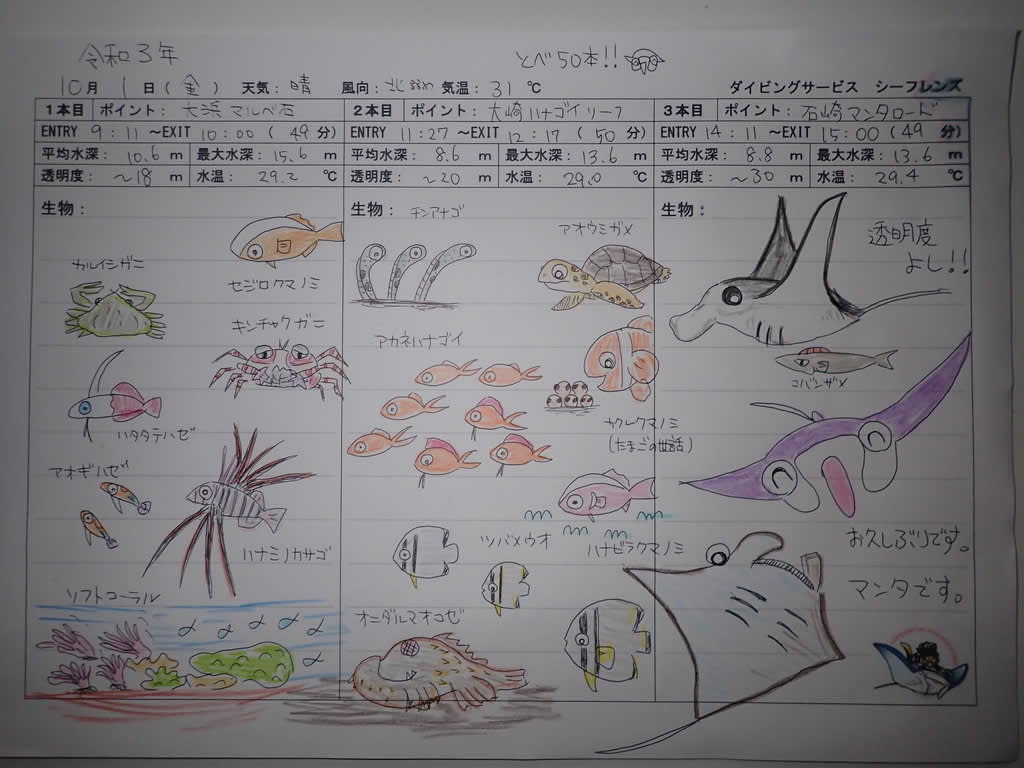 令和3年
とべ50本!!
10月 1日(金) 天気:晴 風向:北 気温:31℃ ダイビングサービス シーフレンズ
1本目 ポイント:大浜マルベ石 2本目 ポイント:大崎ハナゴイリーフ 3本目 ポイント:石崎マンタロード
ENTRY 9:11 ~EXIT 10:00 (49分) ENTRY 11:27 ~EXIT 12:17 (50分) ENTRY 14:11 ~EXIT 15:00 (49分)
平均水深:10.6 m 最大水深:15.6 m 平均水深:8.6 m 最大水深:13.6 m 平均水深:8.8 m 最大水深:13.6 m
透明度:~18 m 水温:29.2 ℃ 透明度:~20 m 水温:29.0 ℃ 透明度:~30 m 水温:29.4 ℃
生物:
カルイシガニ
セジロクマノミ
キンチャクガニ
ハタタテハゼ
アオギハゼ
ハナミノカサゴ
ソフトコーラル
生物:
チンアナゴ
アオウミガメ
アカネハナゴイ
カクレクマノミ
(たまごの世話)
ツバメウオ
ハナビラクマノミ
オニダルマオコゼ
生物:
透明度
よし!!
コバンザメ
お久しぶりです。
マンタです。